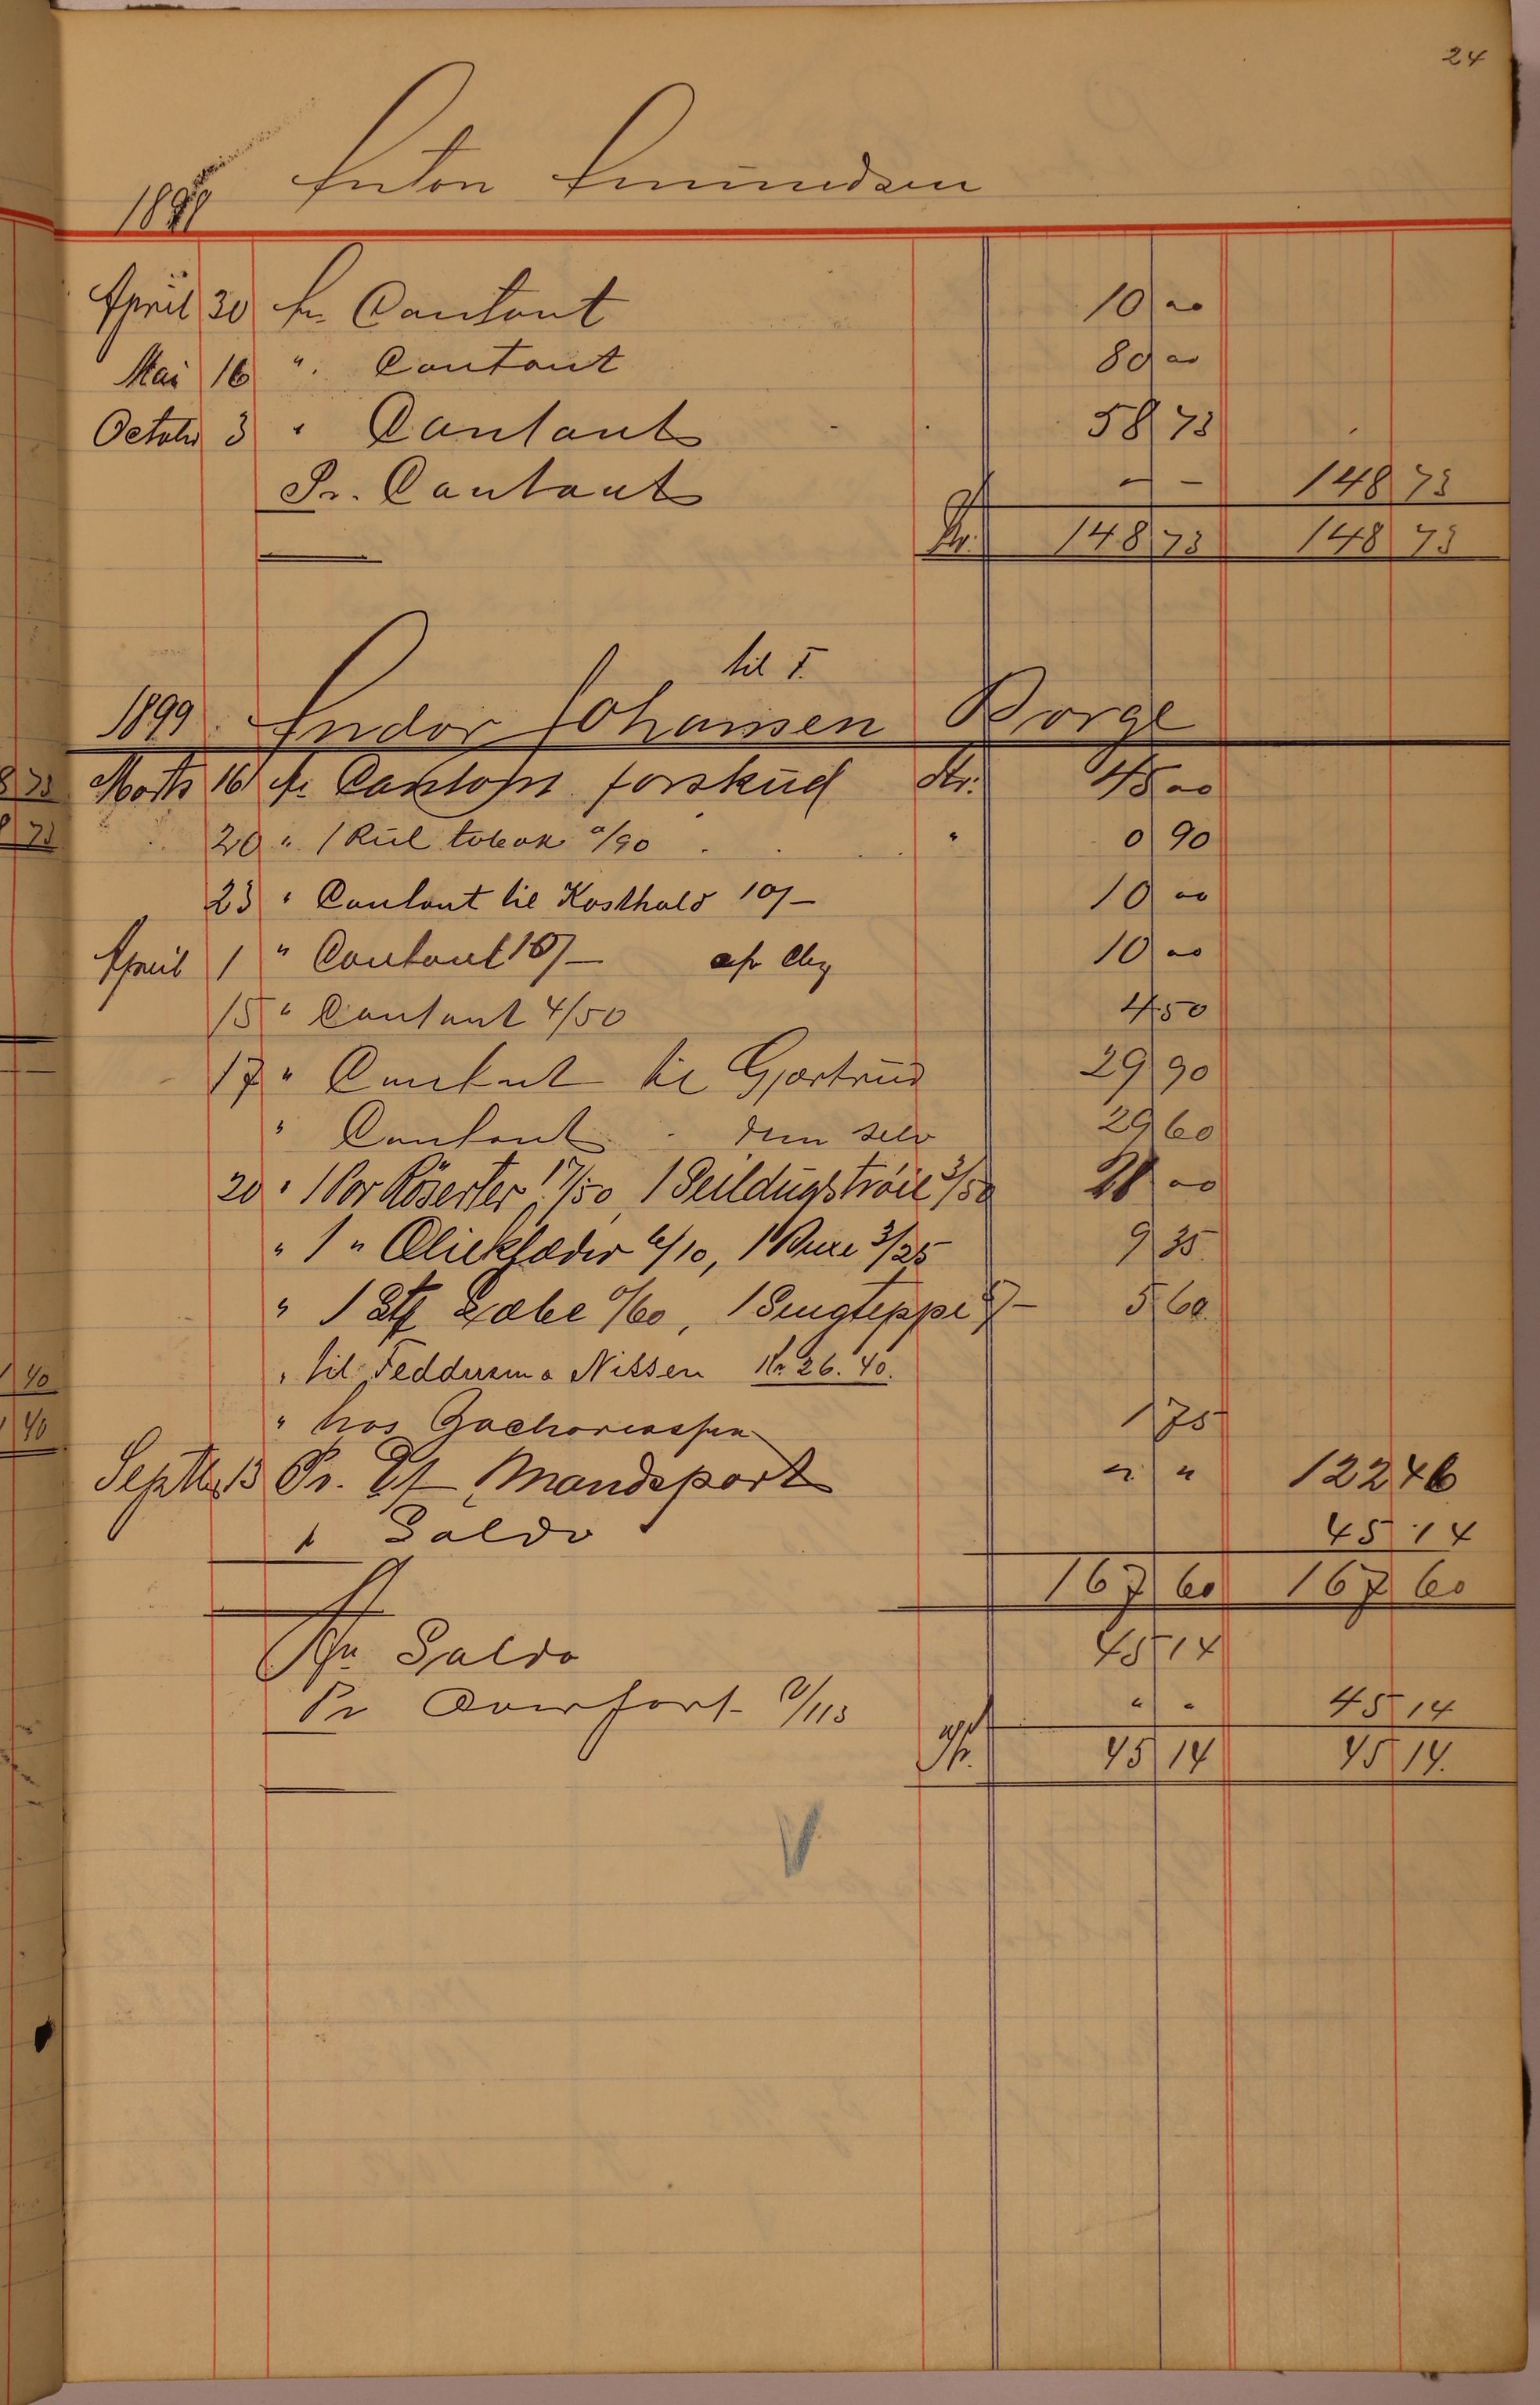 24
1898 Anton Amundsen
April 30 An Contant 10 00
Mai 16 " Contant 80 00
Octobr 3 " Contant 58 73
Pr. Contant — — 148 73
Kr. 148 73 148 73
til I.
1899 Andor Johansen Borge
Marts 16 An Contant forskud Kr. 45 00
20 " 1 Rul tobak 0/90 " 0 90
23 " Contant til Kosthold 10/— 10 00
April 1 " Contant 10/— 10 00
15 " Contant 4/50 4 50
17 " Contant til Gjertrud 29 90
" Contant " dem selv 29 60
20 " 1 Par Röserter 17/50, 1 Seildugströie 3/50 21 00
" 1 " Olieklæder 6/10, 1 Buxe 3/25 9 35
" 1 Stk Sæbe 0/60, 1 Sengteppe 5/— 5 60
" til Feddersen & Nissen Kr. 26.40.
" hos Zachariassen 1 75
Septbr 13 Pr. Mandsport " " 122 46
" Saldo 45 14
167 60 167 60
An Saldo 45 14
Pr 0/113 " " 45 14
Kr. 45 14 45 14
8 73
8 73
1 40
1 40